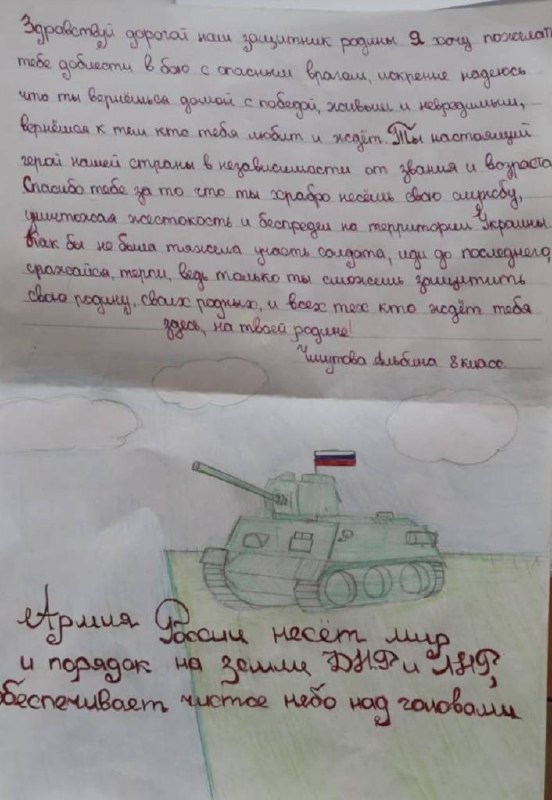 Здравствуй дорогой наш защитник родины. Я хочу пожелать
тебе доблести в бою с опасным врагам, искренне надеюсь
что ты вернёшься домой с победой, живым и невредимым,
вернёшся к тем кто тебя любит и ждёт. Ты настоящий
герой нашей страны в независимости от звания и возраста.
Спасибо тебе за то что ты храбро несёшь свою службу,
уничтожая жестокость и беспредел на территории Украины.
Как бы не была тяжела участь солдата, иди до последнего,
сражайся, терпи, ведь только ты сможешь защитить
свою родину, своих родных, и всех тех кто ждёт тебя
здесь, на твоей родине!
Альбина 8 класс.
Армия России несёт мир
и порядок на земли ДНР и ЛНР,
обеспечивает чистое небо над головами